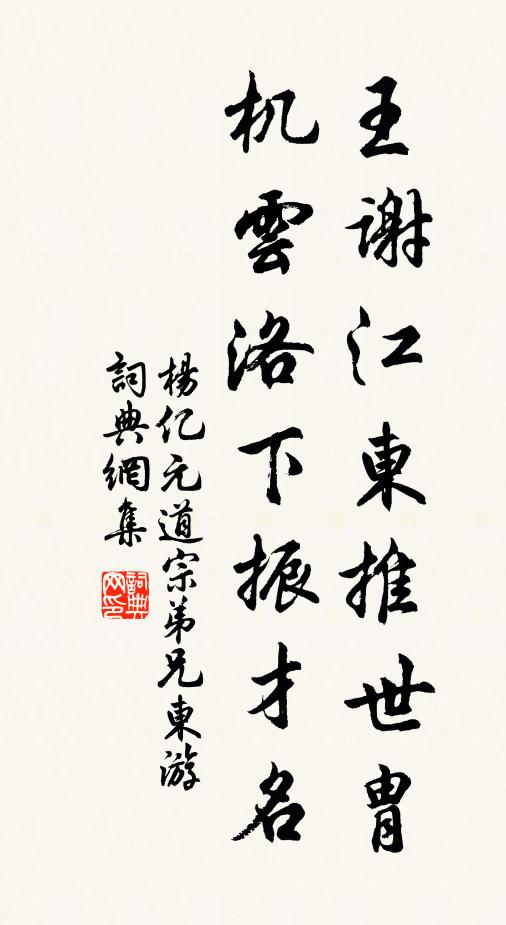 王謝江東推世胄
机雲洛下振才名
楊亿元道宗弟兄東游
詞典網集
詞典网印